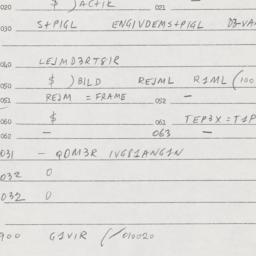 020 $ ) ACTIK 021 -
030 S+PIGL ENGIVDEMS+PIGL D3-VA
LEJMD3RT8IR
050 $ ) BILD REJML R1ML (100
051 REJM = FRAME 052 -
060 $ 061 TEP3X=T1P
062 - 063 -
031 - QDM3R IVG81ANG1N
032 0
032 0
900 G1VIR (/010020